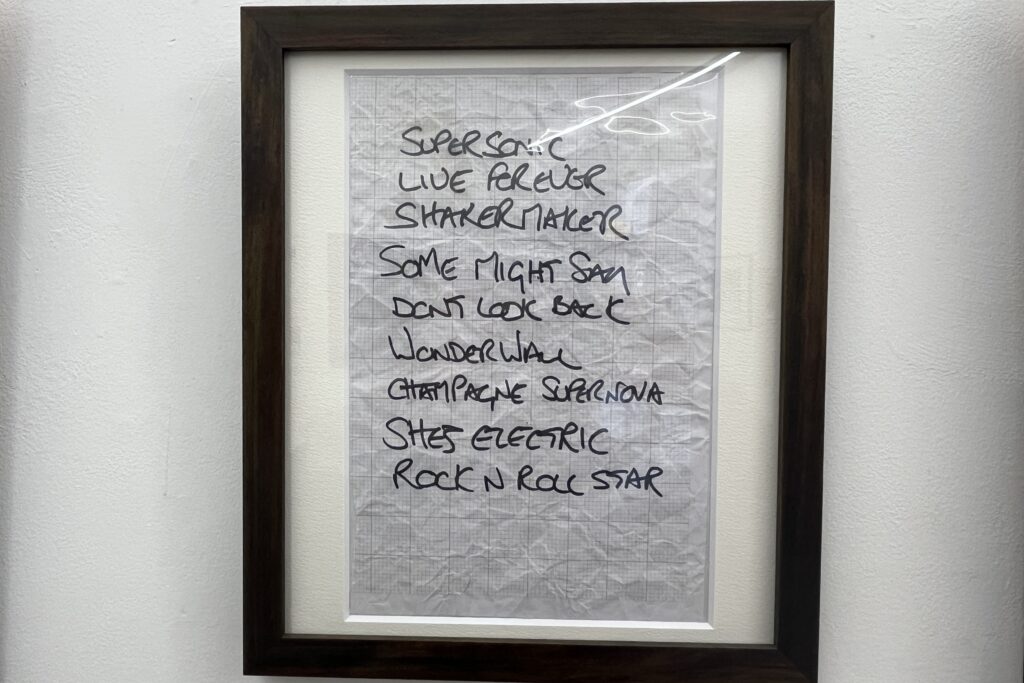 SUPERSONIC
LIVE FOREVER
SHAKERMAKER
SOME MIGHT SAY
DONT LOOK BACK
WONDERWALL
CHAMPAGNE SUPERNOVA
SHES ELECTRIC
ROCK N ROLL STAR